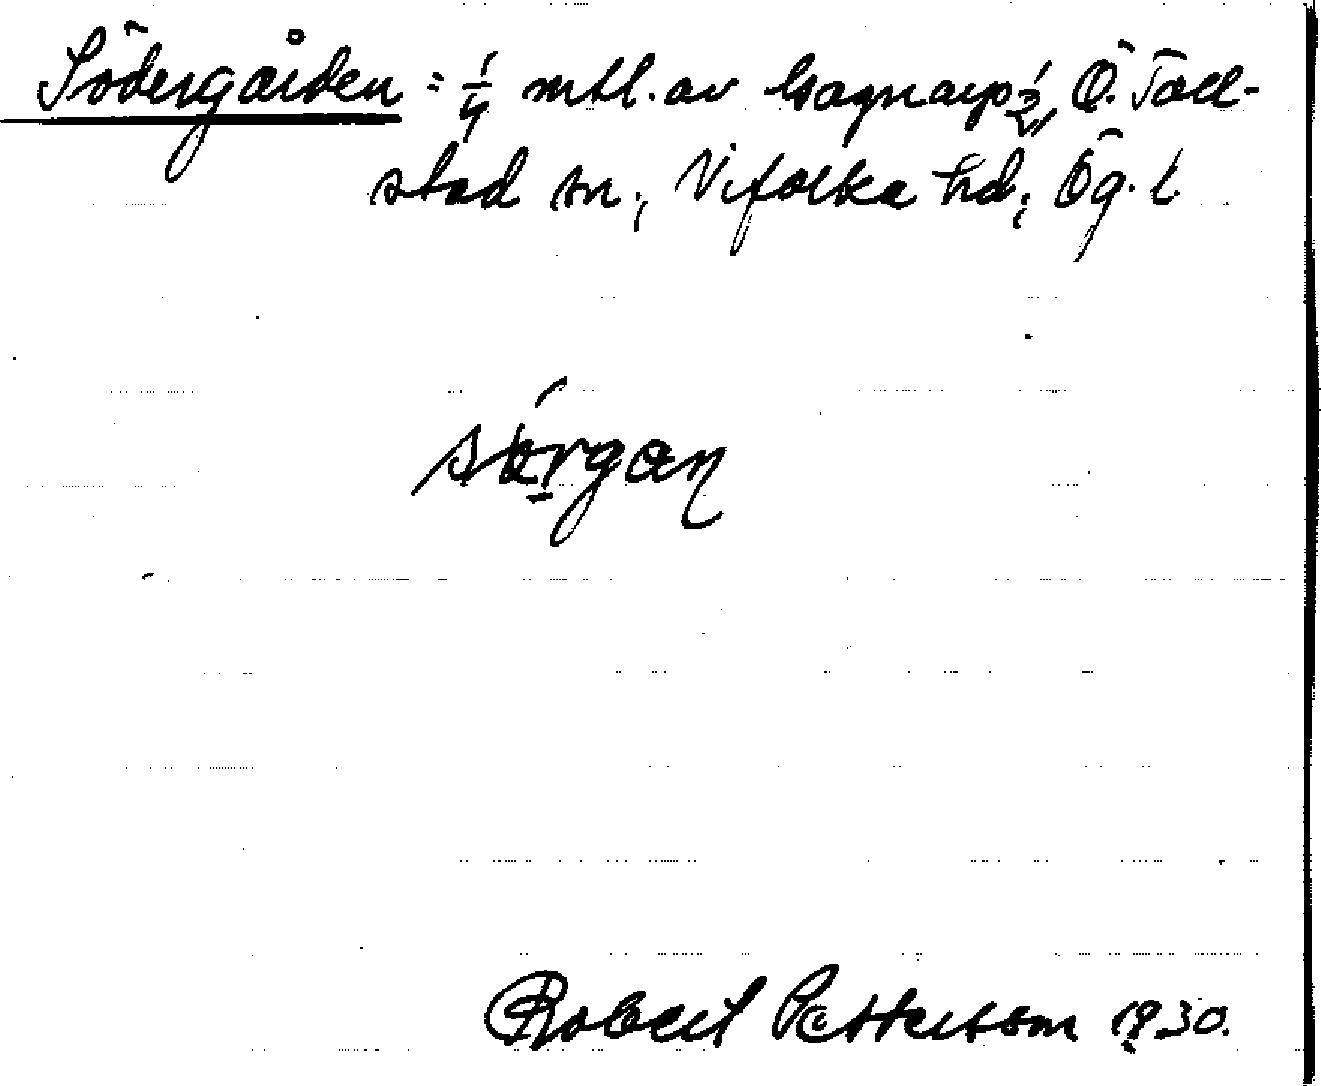 Södergården = 1/4 mtl. av Gagnarp 1/2, Ö. Toll-
stad sn, Vifolka hd, Ög. l.
sörgaɳ
Robert Pettersson 1930.